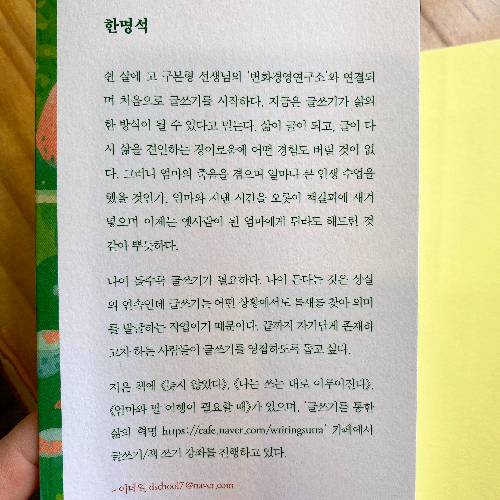 한명석
쉰 살에 고 구본형 선생님의 '변화경영연구소'와 연결되
며 처음으로 글쓰기를 시작하다. 지금은 글쓰기가 삶의
한 방식이 될 수 있다고 믿는다. 삶이 글이 되고, 글이 다
시 삶을 견인하는 경이로움에 어떤 경험도 버릴 것이 없
다. 그러니 엄마의 죽음을 겪으며 얼마나 큰 인생 수업을
했을 것인가. 엄마와 지낸 시간을 오롯이 책갈피에 새겨
넣으며 이제는 옛사람이 된 엄마에게 뭐라도 해드린 것
같아 뿌듯하다.
나이 들수록 글쓰기가 필요하다. 나이 든다는 것은 상실
의 연속인데 글쓰기는 어떤 상황에서도 틈새를 찾아 의미
를 발굴하는 작업이기 때문이다. 끝까지 자기답게 존재하
고자 하는 사람들이 글쓰기를 영접하도록 돕고 싶다.
지은 책에 《늦지 않았다》, 《나는 쓰는 대로 이루어진다》,
《엄마와 딸 여행이 필요할 때》가 있으며, '글쓰기를 통한
삶의 혁명 https://cafe.naver.com/writingsutra' 카페에서
글쓰기/책 쓰기 강좌를 진행하고 있다.
이메일 dschool7@naver.com